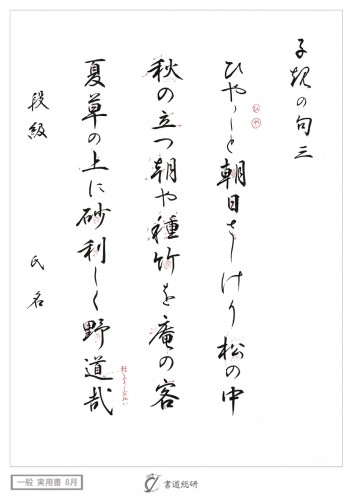 子規の句三
ひや〱と朝日さしけり松の中
ひ
や
秋の立つ朝や種竹を庵の客
夏草の上に砂利しく野道哉
段級　氏名
一般 実用書 8月
書道総研